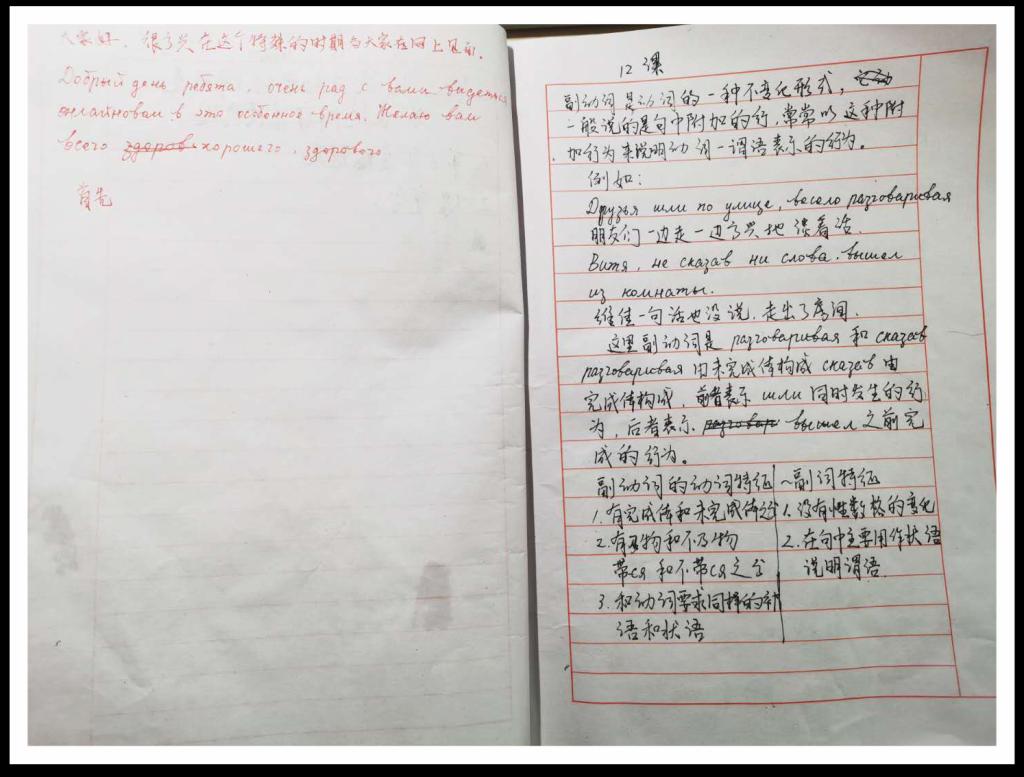 大家好，很高兴在这个特殊的时期与大家在网上见面.
Добрый день ребята, очень рад с вами видеться
онлайновам в это особонное время. Желаю вам
всего здоров хорошего, здорового
首先
12课
副动词是动词的一种不变化形式，
一般说的是句中附加的行, 常常以这种附
加行为来说明动词一谓语表示的行为。
例如：
Друзья шли по улице, весело разговаривая
朋友们一边走一边高兴地谈着话.
Витя, не сказав ни слова, вышел
из комнаты.
维佳一句话也没说, 走出了房间.
这里副动词是 разговаривая 和 сказав
разговаривая 由未完成体构成 сказав 由
完成体构成, 前者表示 шли 同时发生的行
为, 后者表示 разговар вышел 之前完
成的行为。
副动词的动词特征 ～副词特征
1.有完成体和未完成体之分 1.没有性数格的变化
2.有及物和不及物 2.在句中主要用作状语
带ся 和不带ся之分 说明谓语.
3.和动词要求同样的补
语和状语